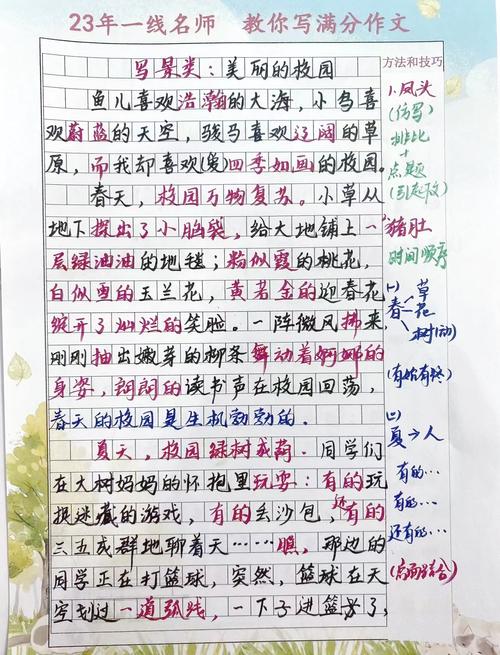 23年一线名师 教你写满分作文
写景类：美丽的校园
鱼儿喜欢浩瀚的大海，小鸟喜
欢蔚蓝的天空，骏马喜欢辽阔的草
原，而我却喜欢(爱)四季如画的校园。
春天，校园万物复苏。小草从
地下探出了小脑袋，给大地铺上一
层绿油油的地毯；粉似霞的桃花，
白似雪的玉兰花，黄若金的迎春花
绽开了灿烂的笑脸。一阵微风拂来，
刚刚抽出嫩芽的柳条舞动着婀娜的
身姿，朗朗的读书声在校园回荡，
春天的校园是生机勃勃的。
夏天，校园绿树成荫。同学们
在大树妈妈的怀抱里玩耍：有的玩
捉迷藏的游戏，有的丢沙包，还有的
三五成群地聊着天……瞧，那边的
同学正在打篮球，突然，篮球在天
空划过一道弧线，一下子进篮了，
方法和技巧
1、凤头
(仿写)
排比
+
点题
(引起下文)
猪肚
时间顺序
(一)
春 草
花
树(动)
(有始有终)
(二)
夏→人
有的…
有的…
还有的…